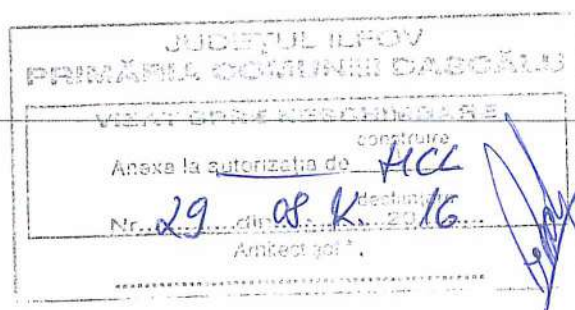 JUDEȚUL ILFOV
PRIMĂRIA COMUNEI DASCĂLU
VIZAT SPRE NESCHIMBARE
construire
Anexa la autorizația de HCL
desființare
Nr. 29 din 08. 20 16
Arhitect șef